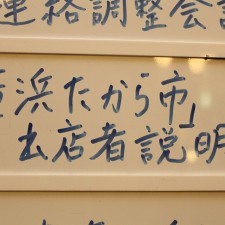 連絡調整会
浜たから市」
出店者説明